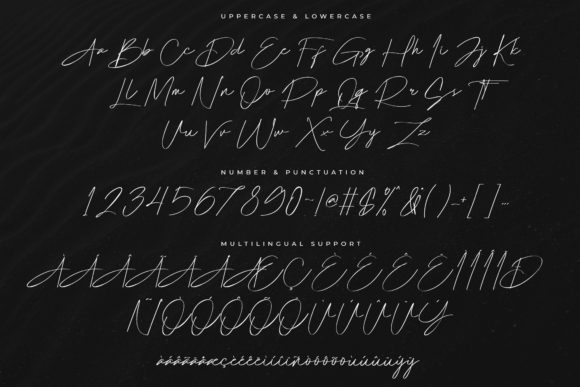 UPPERCASE & LOWERCASE
Aa Bb Cc Dd Ee Ff Gg Hh Ii Jj Kk
Ll Mm Nn Oo Pp Qq Rr Ss Tt
Uu Vv Ww Xx Yy Zz
NUMBER & PUNCTUATION
1234567890-!@#$%^&()_+[]...
MULTILINGUAL SUPPORT
ÀÁÂÃÄÅÆÇÈÉÊËÌÍÎÏÐ
ÑÒÓÔÕÖÙÚÛÜÝ
àáâãäåæçèéêëìíîïñòóôõöùúûüýÿ